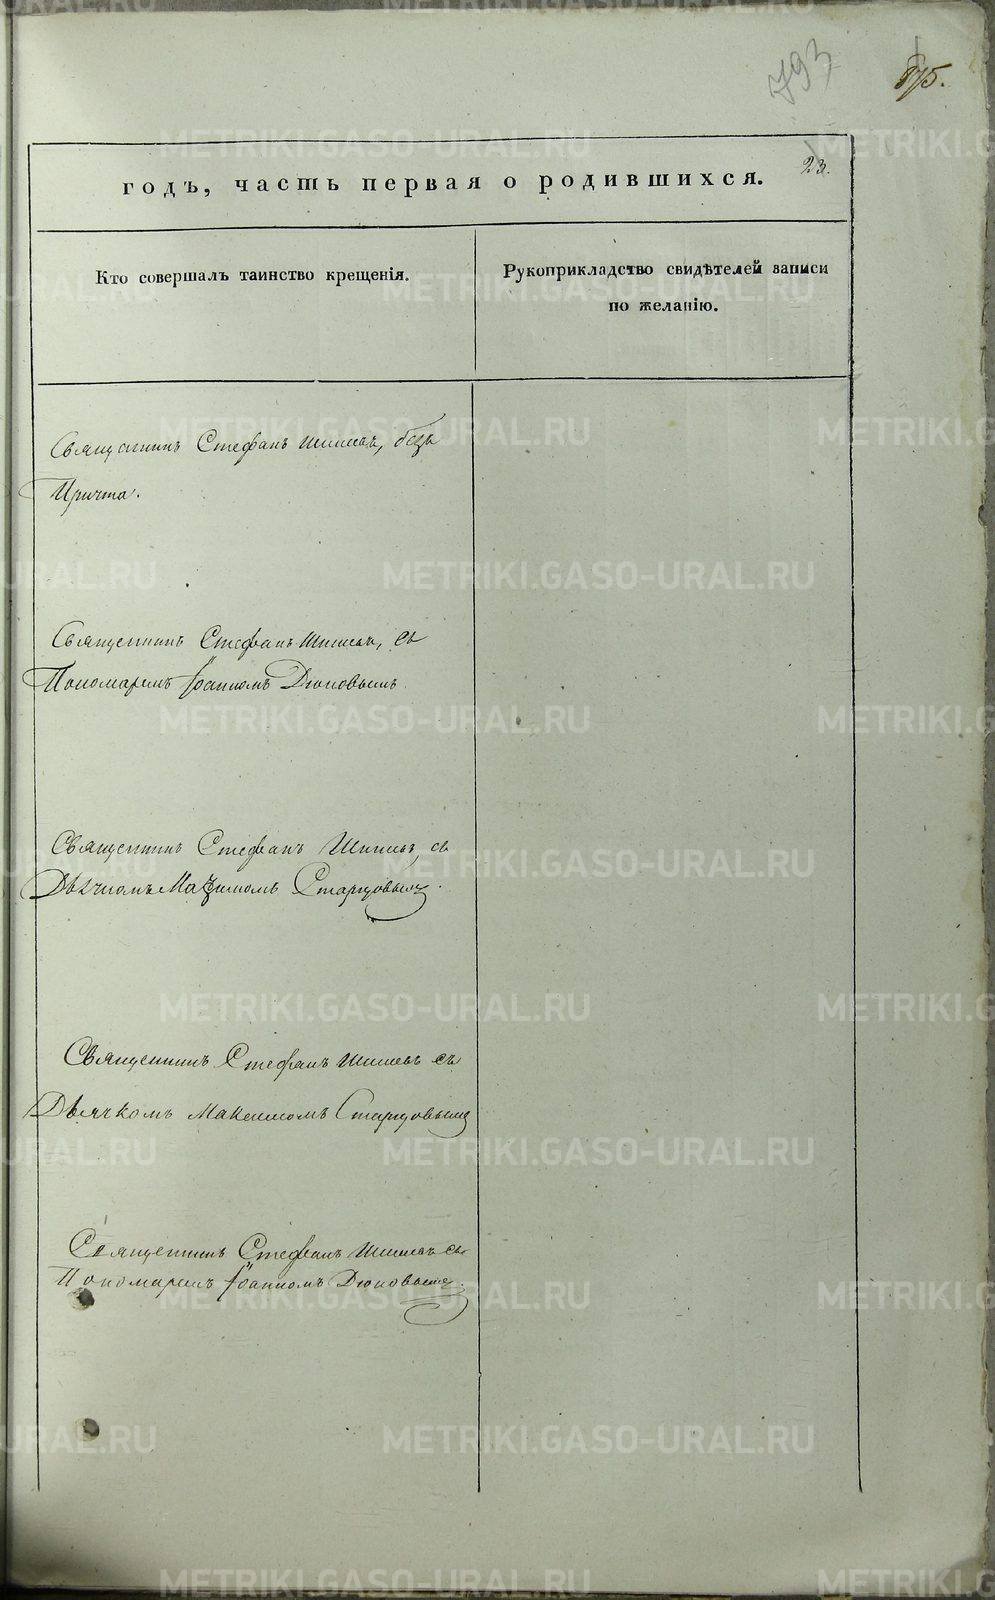 793
175.
23.
годъ, часть первая о родившихся.
Кто совершалъ таинство крещенія.
Рукоприкладство свидѣтелей записи
по желанію.
Священникъ Стефанъ Шишевъ, безъ
Причта.
Священникъ Стефанъ Шишевъ, съ
Пономаремъ Іоанномъ Дюковымъ.
Священникъ Стефанъ Шишевъ, съ
Дьячкомъ Максимомъ Старцовымъ.
Священникъ Стефанъ Шишевъ съ
Дьячкомъ Максимомъ Старцовымъ
Священникъ Стефанъ Шишевъ съ
Пономаремъ Іоанномъ Дюковымъ.
METRIKI.GASO-URAL.RU